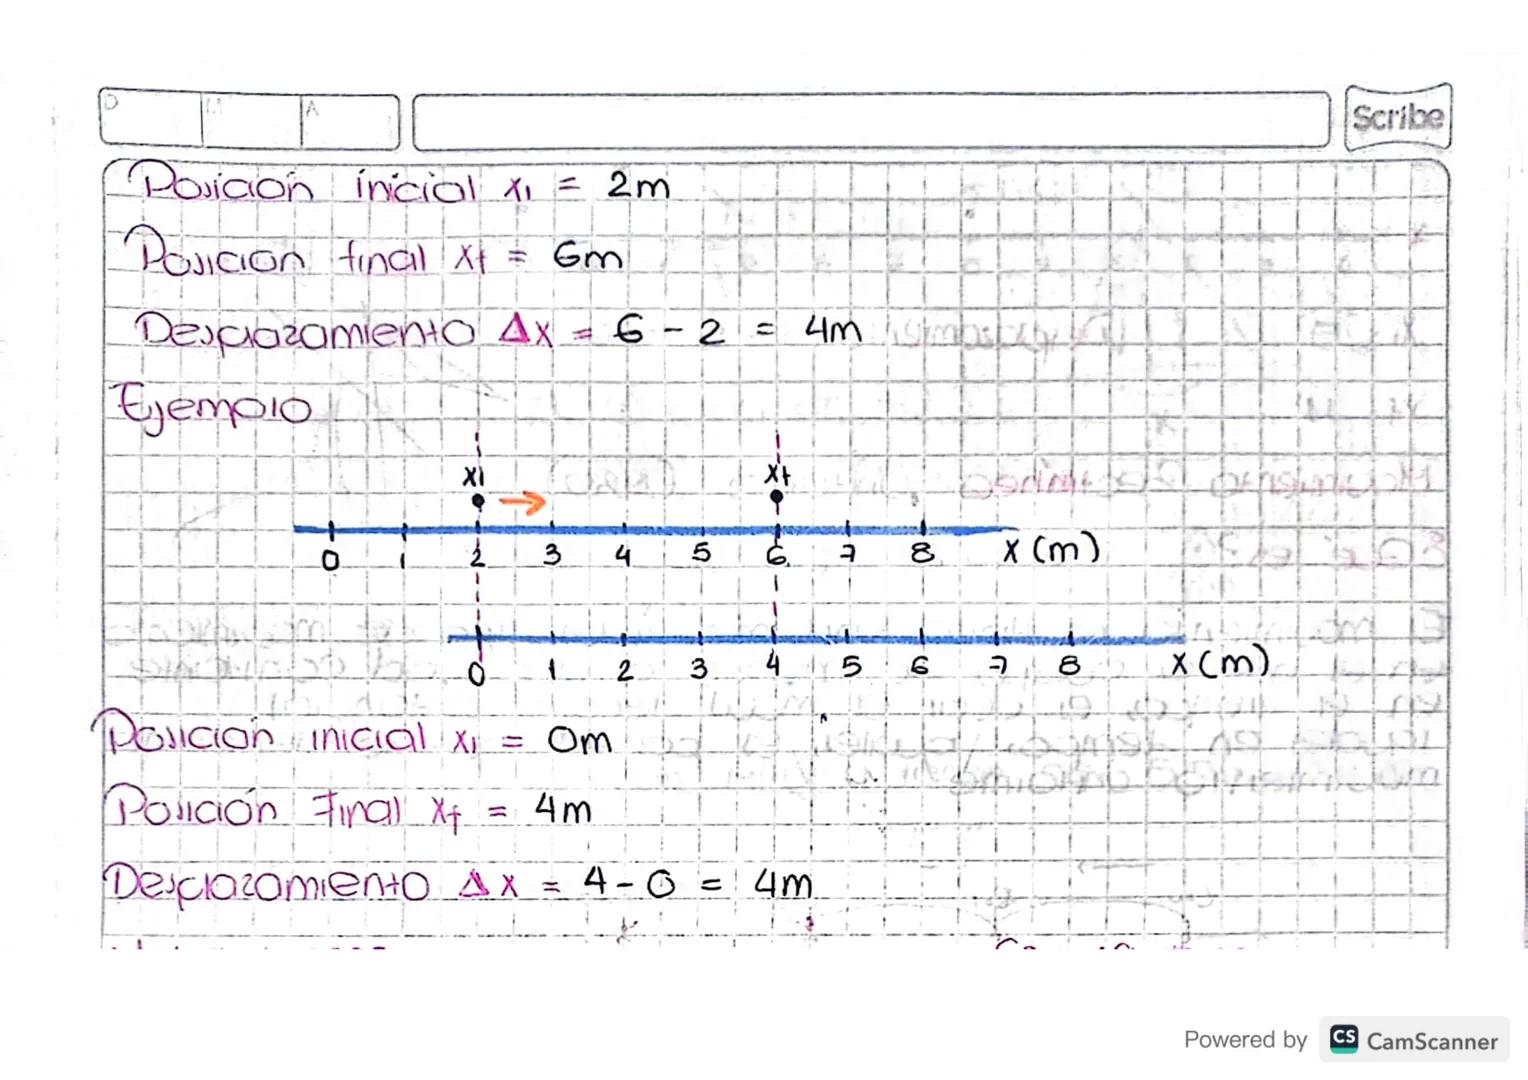 D M A
Scribe
Posición inicial xi = 2m
Posición final xf = 6m
Desplazamiento Δx = 6 - 2 = 4m
Ejemplo
xi xf
0 1 2 3 4 5 6 7 8 x (m)
0 1 2 3 4 5 6 7 8 x (m)
Posición inicial xi = 0m
Posición Final xf = 4m
Desplazamiento Δx = 4 - 0 = 4m
Powered by CS CamScanner